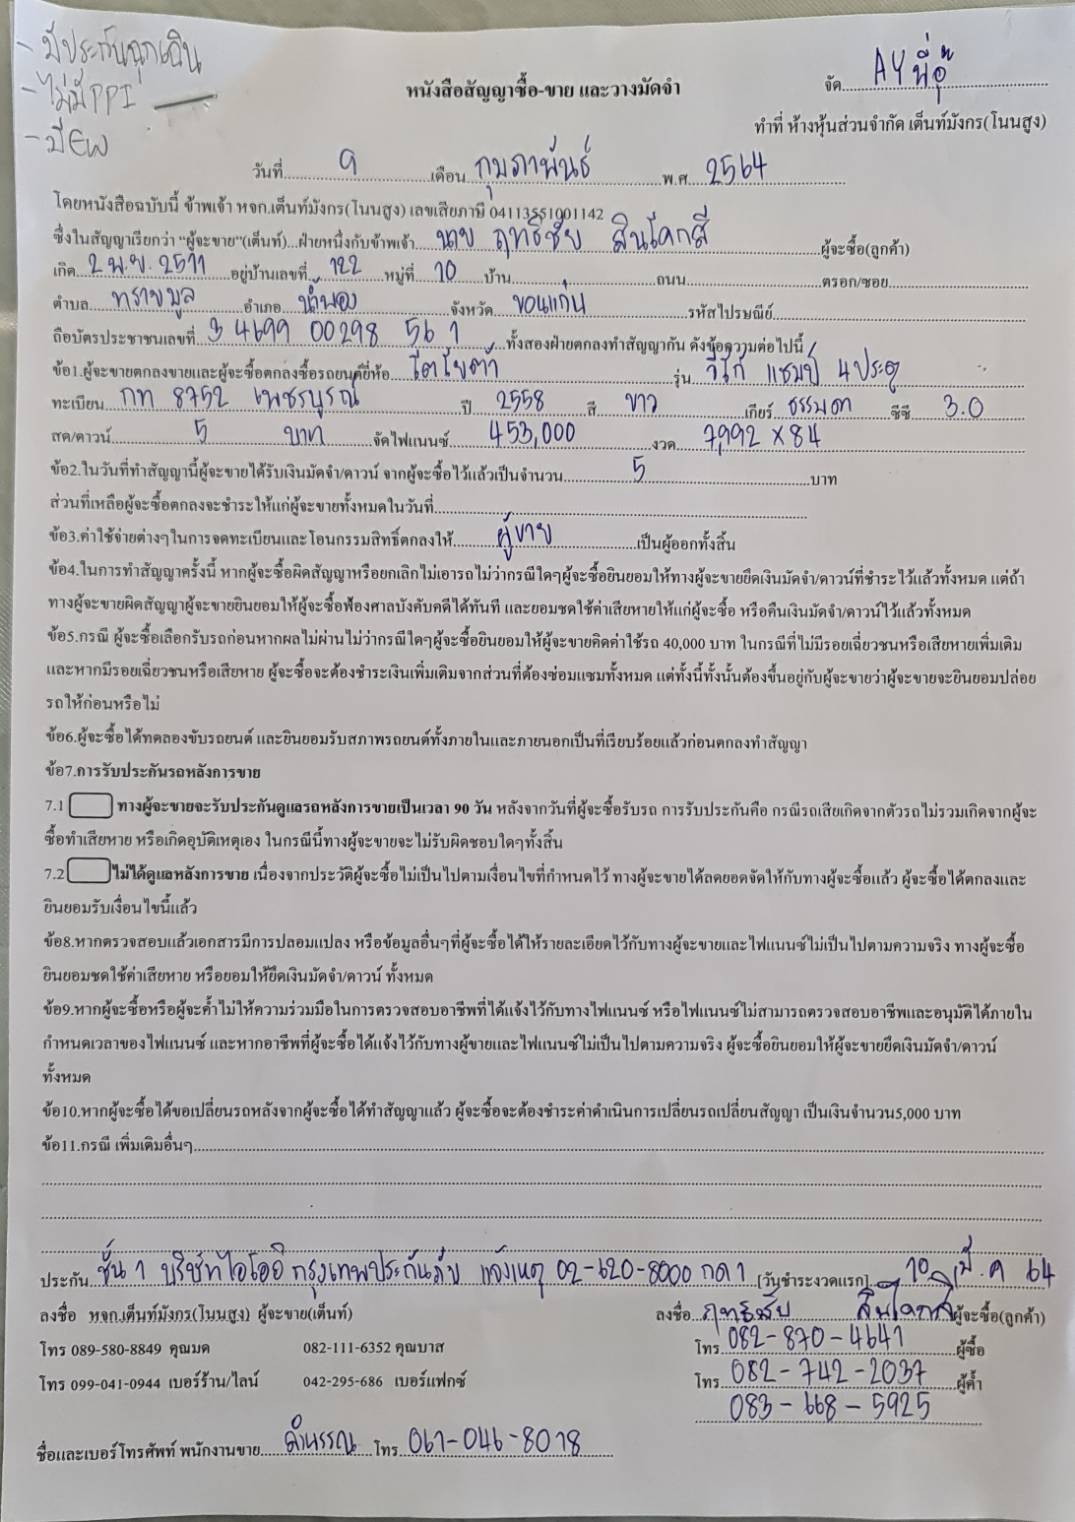 - มีประกันฉุกเฉิน
- ไม่มี PPI
- มี EW
จัด AY พี่อู๋
หนังสือสัญญาซื้อ-ขาย และวางมัดจำ
ทำที่ ห้างหุ้นส่วนจำกัด เต็นท์มังกร(โนนสูง)
วันที่ 9 เดือน กุมภาพันธ์ พ.ศ. 2564
โดยหนังสือฉบับนี้ ข้าพเจ้า หจก.เต็นท์มังกร(โนนสูง) เลขเสียภาษี 04113551001142
ซึ่งในสัญญาเรียกว่า "ผู้จะขาย"(เต็นท์)...ฝ่ายหนึ่งกับข้าพเจ้า นาย ฤทธิชัย สินโคกสี ผู้จะซื้อ(ลูกค้า)
เกิด 2 พ.ย. 2511 อยู่บ้านเลขที่ 122 หมู่ที่ 10 บ้าน ถนน ตรอก/ซอย
ตำบล ทรายมูล อำเภอ น้ำพอง จังหวัด ขอนแก่น รหัสไปรษณีย์
ถือบัตรประชาชนเลขที่ 3 4699 00298 56 1 ทั้งสองฝ่ายตกลงทำสัญญากัน ดังข้อความต่อไปนี้
ข้อ1.ผู้จะขายตกลงขายและผู้จะซื้อตกลงซื้อรถยนต์ยี่ห้อ โตโยต้า รุ่น วีโก้ แชมป์ 4 ประตู
ทะเบียน กท 8752 เพชรบูรณ์ ปี 2558 สี ขาว เกียร์ ธรรมดา ซีซี 3.0
สด/ดาวน์ 5 บาท จัดไฟแนนซ์ 453,000 งวด 7,992 x 84
ข้อ2.ในวันที่ทำสัญญานี้ผู้จะขายได้รับเงินมัดจำ/ดาวน์ จากผู้จะซื้อไว้แล้วเป็นจำนวน 5 บาท
ส่วนที่เหลือผู้จะซื้อตกลงจะชำระให้แก่ผู้จะขายทั้งหมดในวันที่
ข้อ3.ค่าใช้จ่ายต่างๆในการจดทะเบียนและโอนกรรมสิทธิ์ตกลงให้ ผู้ขาย เป็นผู้ออกทั้งสิ้น
ข้อ4.ในการทำสัญญาครั้งนี้ หากผู้จะซื้อผิดสัญญาหรือยกเลิกไม่เอารถไม่ว่ากรณีใดๆผู้จะซื้อยินยอมให้ทางผู้จะขายยึดเงินมัดจำ/ดาวน์ที่ชำระไว้แล้วทั้งหมด แต่ถ้า
ทางผู้จะขายผิดสัญญาผู้จะขายยินยอมให้ผู้จะซื้อฟ้องศาลบังคับคดีได้ทันที และยอมชดใช้ค่าเสียหายให้แก่ผู้จะซื้อ หรือคืนเงินมัดจำ/ดาวน์ไว้แล้วทั้งหมด
ข้อ5.กรณี ผู้จะซื้อเลือกรับรถก่อนหากผลไม่ผ่านไม่ว่ากรณีใดๆผู้จะซื้อยินยอมให้ผู้จะขายคิดค่าใช้รถ 40,000 บาท ในกรณีที่ไม่มีรอยเฉี่ยวชนหรือเสียหายเพิ่มเติม
และหากมีรอยเฉี่ยวชนหรือเสียหาย ผู้จะซื้อจะต้องชำระเงินเพิ่มเติมจากส่วนที่ต้องซ่อมแซมทั้งหมด แต่ทั้งนี้ทั้งนั้นต้องขึ้นอยู่กับผู้จะขายว่าผู้จะขายจะยินยอมปล่อย
รถให้ก่อนหรือไม่
ข้อ6.ผู้จะซื้อได้ทดลองขับรถยนต์ และยินยอมรับสภาพรถยนต์ทั้งภายในและภายนอกเป็นที่เรียบร้อยแล้วก่อนตกลงทำสัญญา
ข้อ7.การรับประกันรถหลังการขาย
7.1 ทางผู้จะขายจะรับประกันดูแลรถหลังการขายเป็นเวลา 90 วัน หลังจากวันที่ผู้จะซื้อรับรถ การรับประกันคือ กรณีรถเสียเกิดจากตัวรถไม่รวมเกิดจากผู้จะ
ซื้อทำเสียหาย หรือเกิดอุบัติเหตุเอง ในกรณีนี้ทางผู้จะขายจะไม่รับผิดชอบใดๆทั้งสิ้น
7.2 ไม่ได้ดูแลหลังการขาย เนื่องจากประวัติผู้จะซื้อไม่เป็นไปตามเงื่อนไขที่กำหนดไว้ ทางผู้จะขายได้ลดยอดจัดให้กับทางผู้จะซื้อแล้ว ผู้จะซื้อได้ตกลงและ
ยินยอมรับเงื่อนไขนี้แล้ว
ข้อ8.หากตรวจสอบแล้วเอกสารมีการปลอมแปลง หรือข้อมูลอื่นๆที่ผู้จะซื้อได้ให้รายละเอียดไว้กับทางผู้จะขายและไฟแนนซ์ไม่เป็นไปตามความจริง ทางผู้จะซื้อ
ยินยอมชดใช้ค่าเสียหาย หรือยอมให้ยึดเงินมัดจำ/ดาวน์ ทั้งหมด
ข้อ9.หากผู้จะซื้อหรือผู้จะค้ำไม่ให้ความร่วมมือในการตรวจสอบอาชีพที่ได้แจ้งไว้กับทางไฟแนนซ์ หรือไฟแนนซ์ไม่สามารถตรวจสอบอาชีพและอนุมัติได้ภายใน
กำหนดเวลาของไฟแนนซ์ และหากอาชีพที่ผู้จะซื้อได้แจ้งไว้กับทางผู้ขายและไฟแนนซ์ไม่เป็นไปตามความจริง ผู้จะซื้อยินยอมให้ผู้จะขายยึดเงินมัดจำ/ดาวน์
ทั้งหมด
ข้อ10.หากผู้จะซื้อได้ขอเปลี่ยนรถหลังจากผู้จะซื้อได้ทำสัญญาแล้ว ผู้จะซื้อจะต้องชำระค่าดำเนินการเปลี่ยนรถเปลี่ยนสัญญา เป็นเงินจำนวน5,000 บาท
ข้อ11.กรณี เพิ่มเติมอื่นๆ
ประกัน ชั้น 1 บริษัทไอโออิ กรุงเทพประกันภัย แจ้งเหตุ 02-620-8000 กด 1 [วันชำระงวดแรก] 10 มี.ค 64
ลงชื่อ หจก.เต็นท์มังกร(โนนสูง) ผู้จะขาย(เต็นท์) ลงชื่อ ฤทธิชัย สินโคกสี ผู้จะซื้อ(ลูกค้า)
โทร 089-580-8849 คุณมด 082-111-6352 คุณบาส โทร 082-870-4641 ผู้ซื้อ
โทร 099-041-0944 เบอร์ร้าน/ไลน์ 042-295-686 เบอร์แฟกซ์ โทร 082-742-2037 ผู้ค้ำ
083-668-5925
ชื่อและเบอร์โทรศัพท์ พนักงานขาย ลำพรรณ โทร 061-046-8018